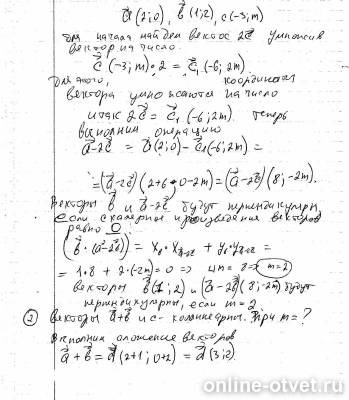 a⃗(2;0), b⃗(1;2), c(-3;m)
для начала найдем вектор 2c⃗ умножив
вектор на число.
c⃗(-3;m)•2 = c⃗₁(-6;2m)
Для этого, координаты
вектора умножаются на число
итак 2c⃗ = c⃗₁(-6;2m). теперь
выполним операцию
a⃗-2c⃗ = a⃗(2;0)-c⃗₁(-6;2m) =
=(a⃗-2c⃗)(2+6; 0-2m)=(a⃗-2c⃗)(8;-2m).
Векторы b⃗ и a⃗-2c⃗ будут перпендикулярны,
если скалярное произведение векторов
равно 0.
(b⃗•(a⃗-2c⃗)) =
= 1•8 + 2•(-2m)=0 => 4m=8 => m=2
векторы b⃗(1;2) и (a⃗-2c⃗)(8;-2m) будут
перпендикулярны, если m=2
② Векторы a⃗+b⃗ и c- коллинеарны. При m=?
Выполним сложение векторов
a⃗+b⃗ = d⃗(2+1; 0+2) = d⃗(3;2)
online-otvet.ru